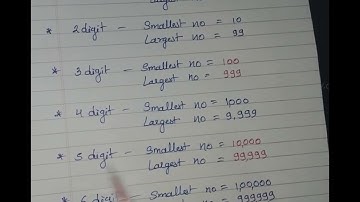 * 2 digit - Smallest no = 10
Largest no = 99
* 3 digit - Smallest no = 100
Largest no = 999
* 4 digit - Smallest no = 1000
Largest no = 9,999
* 5 digit - Smallest no = 10,000
Largest no = 99,999
* 6 digit - Smallest no = 1,00,000